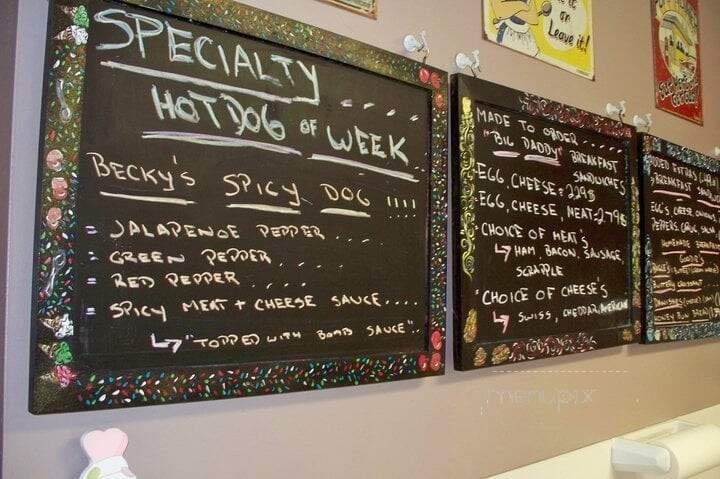 SPECIALTY
HOT DOG OF WEEK
BECKY'S SPICY DOG !!!!
= JALAPENOE PEPPER....
= GREEN PEPPER....
= RED PEPPER.....
= SPICY MEAT + CHEESE SAUCE....
"TOPPED WITH BOMB SAUCE"..
MADE TO ORDER.....
"BIG DADDY" BREAKFAST
SANDWICHES
EGG, CHEESE = 2.29$
EGG, CHEESE, MEAT-2.79$
CHOICE OF MEAT'S
HAM, BACON, SAUSAGE,
SCRAPPLE
CHOICE OF CHEESE'S
SWISS, CHEDDAR, AMERICAN
ADDED EXTRAS
BREAKFAST
EGG'S, CHEESE, ONIONS
PEPPERS,
HOMEMADE BREAKFAST
GOODIES
HONEY BUN BREAD
it or
Leave it!
menupix